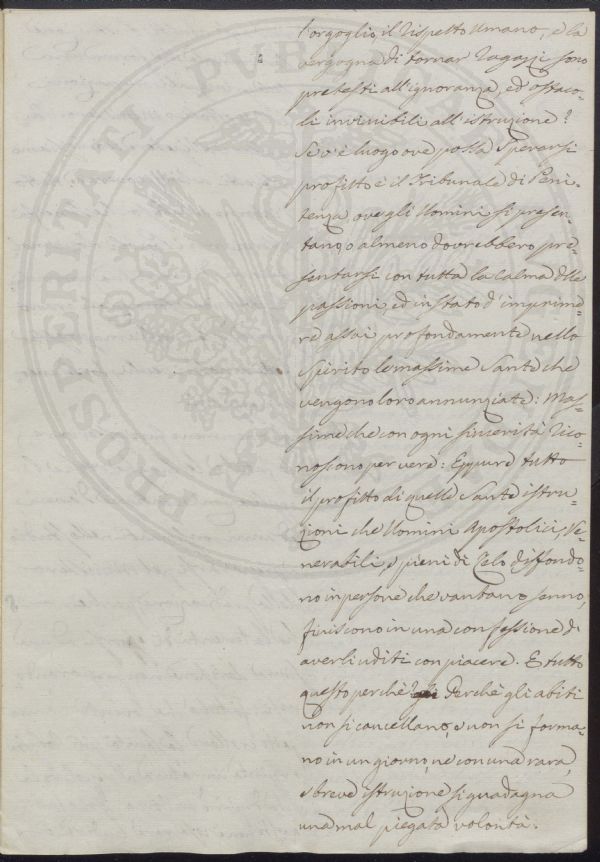 l'orgoglio, il rispetto umano, e la
vergogna di tornar Ragazzi sono
pretesti all'ignoranza, ed ostaco-
li invincibili all'istruzione?
Se v'è luogo ove possa sperarsi
profitto è il Tribunale di Peni-
tenza, ove gli Uomini si presen-
tano, o almeno dovrebbero pre-
sentarsi con tutta la calma delle
passioni, ed in stato d'imprime-
re assai profondamente nello
Spirito le massime Sante che
vengono loro annunziate: Mas-
sime che con ogni sincerità rico-
noscono per vere: Eppure tutto
il profitto di quelle Sante istru-
zioni che Uomini Apostolici, Ve-
nerabili, e pieni di Zelo diffondo-
no in persone che vantano senno,
finiscono in una confessione di
averli uditi con piacere. E tutto
questo perchè? Perchè gli abiti
non si cancellano, e non si forma-
no in un giorno, ne con una rara,
e breve istruzione si guadagna
una mal piegata volontà.
PROSPERITATI PUBLICAE